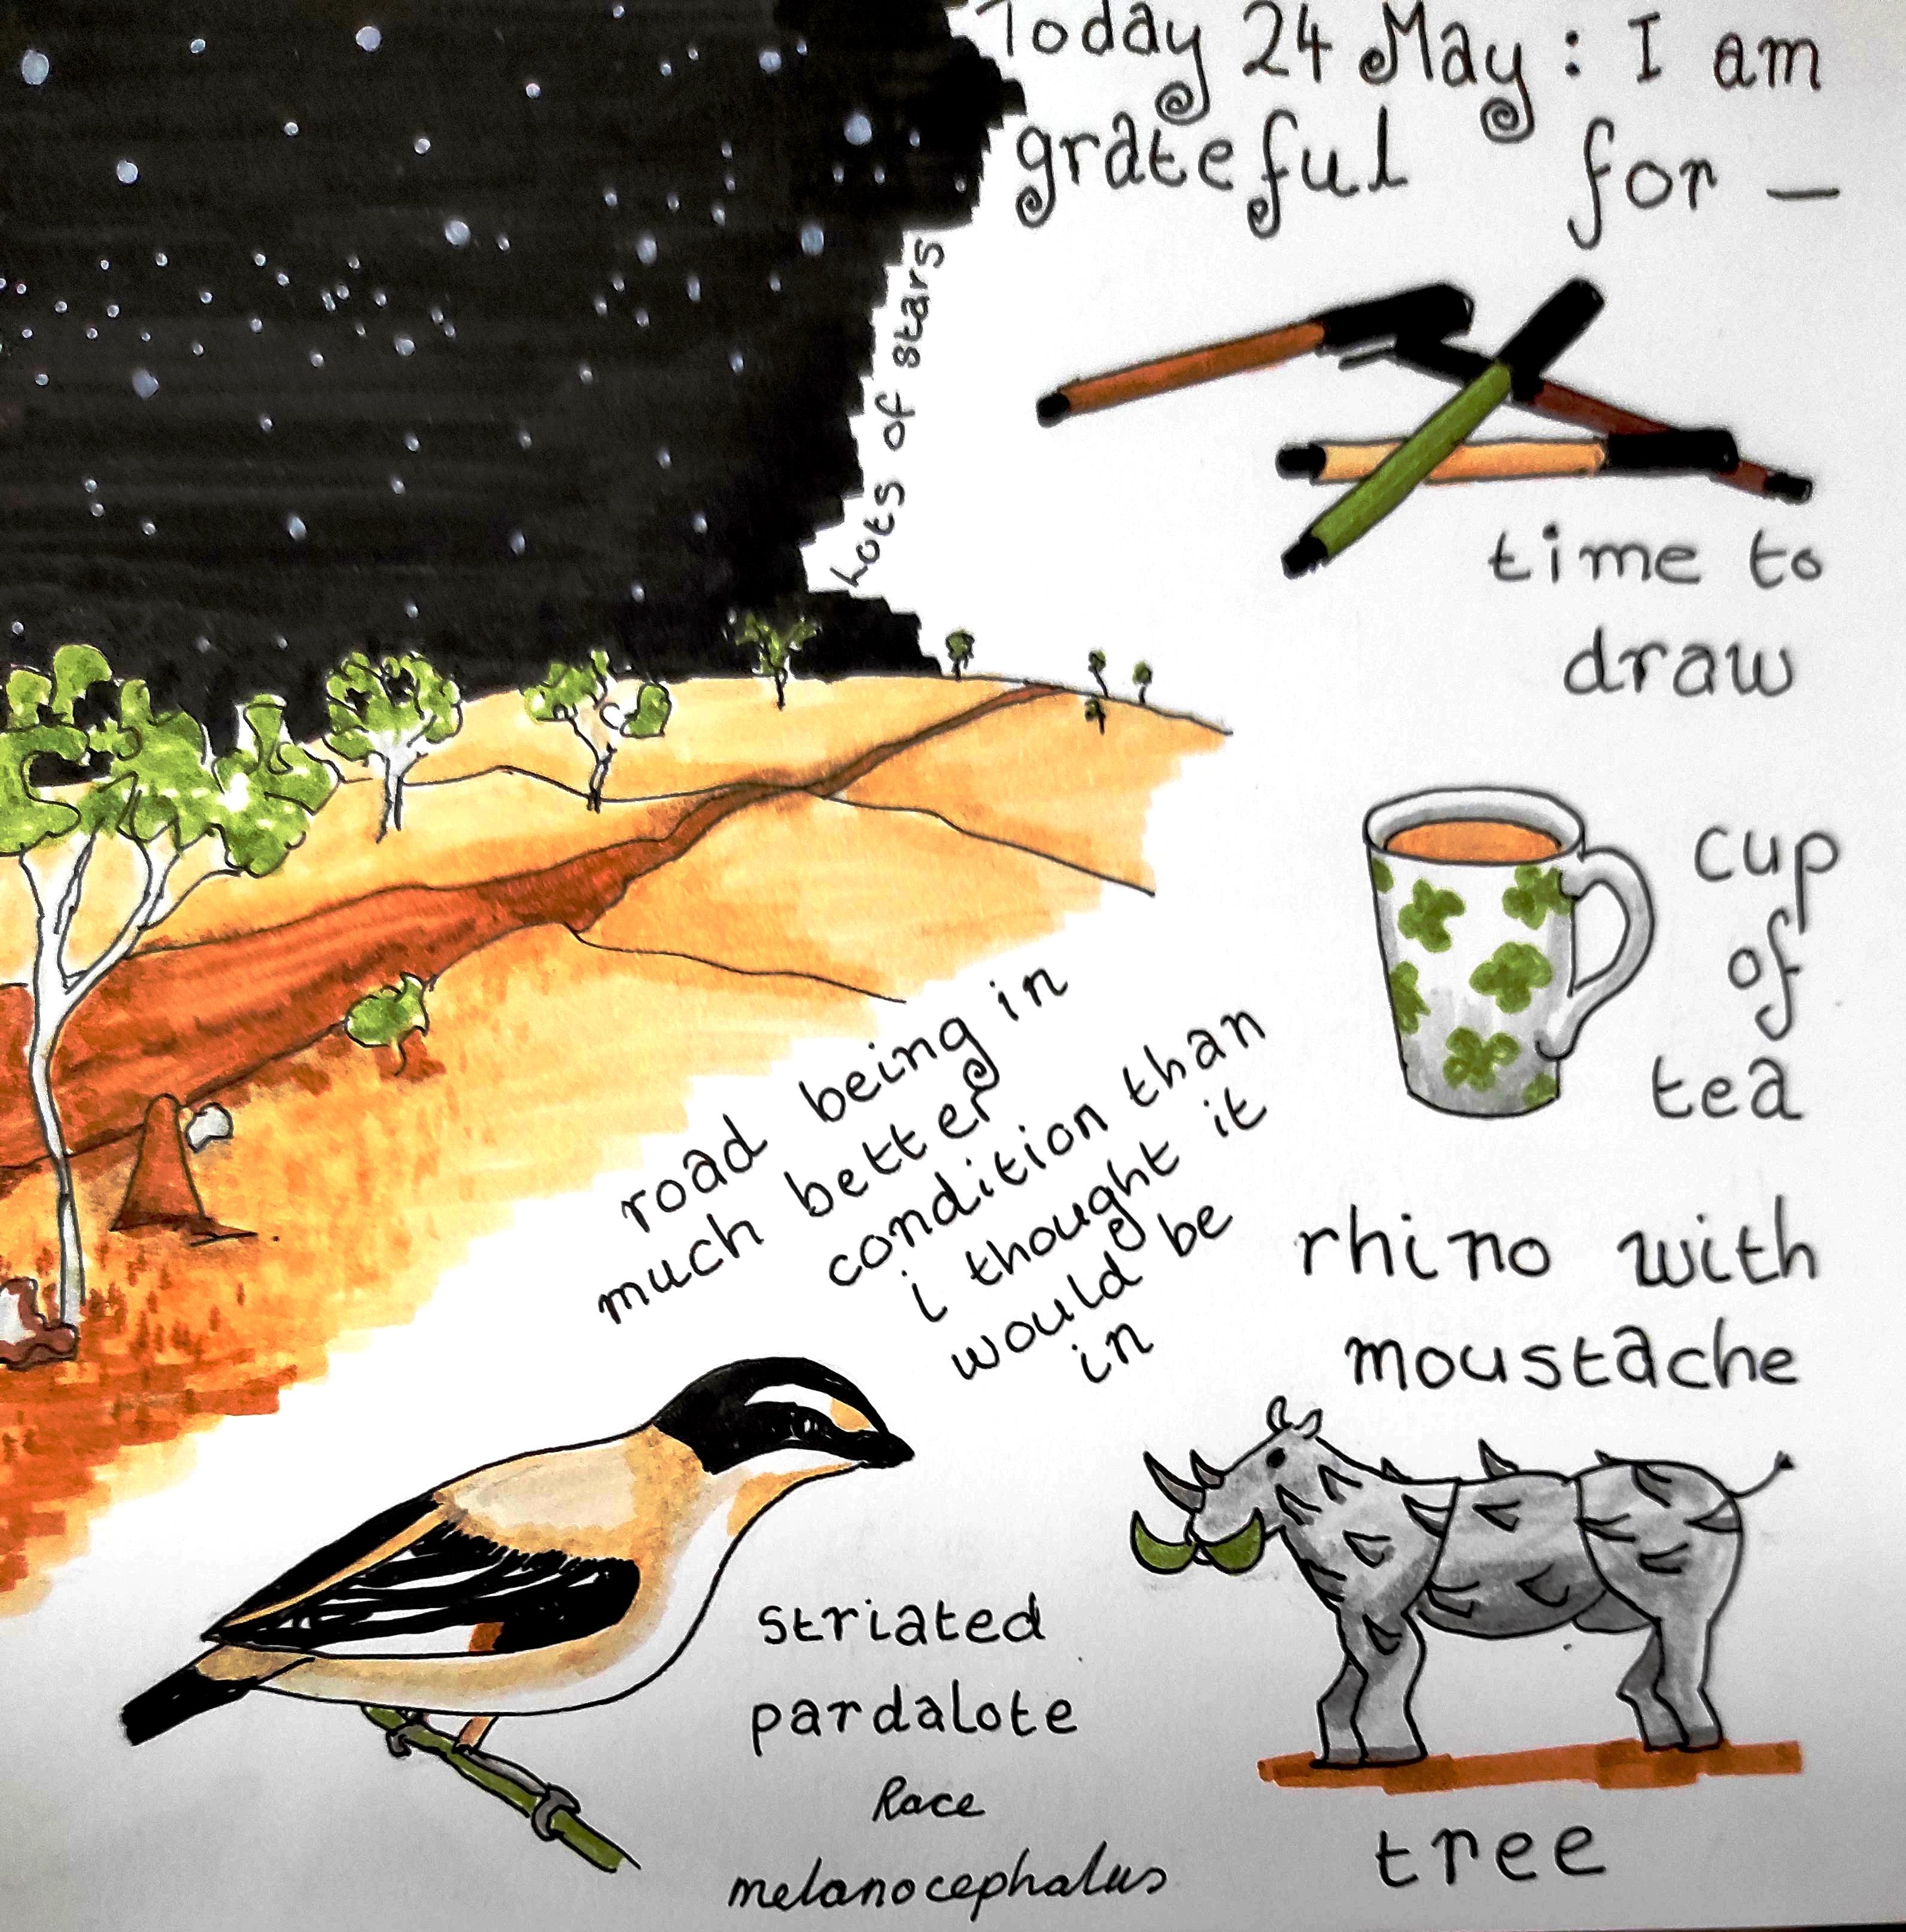 Today 24 May : I am
grateful for —
Lots of stars
time to
draw
cup
of
tea
road being in
much better
condition than
i thought it
would be
in
rhino with
moustache
tree
striated
pardalote
Race
melanocephalus